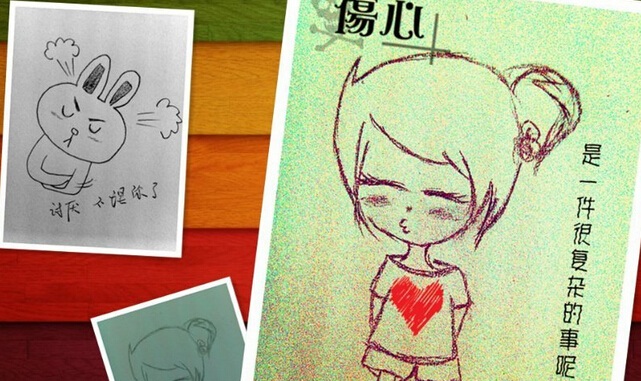 讨厌 不理你了
傷心
是一件很复杂的事呢